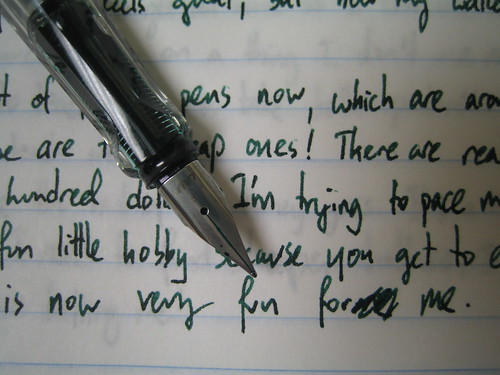 this great, but now my walle
t of pens now, which are aro
e are ap ones! There are rea
hundred dol I'm trying to pace m
fun little hobby because you get to e
is now very fun for me.